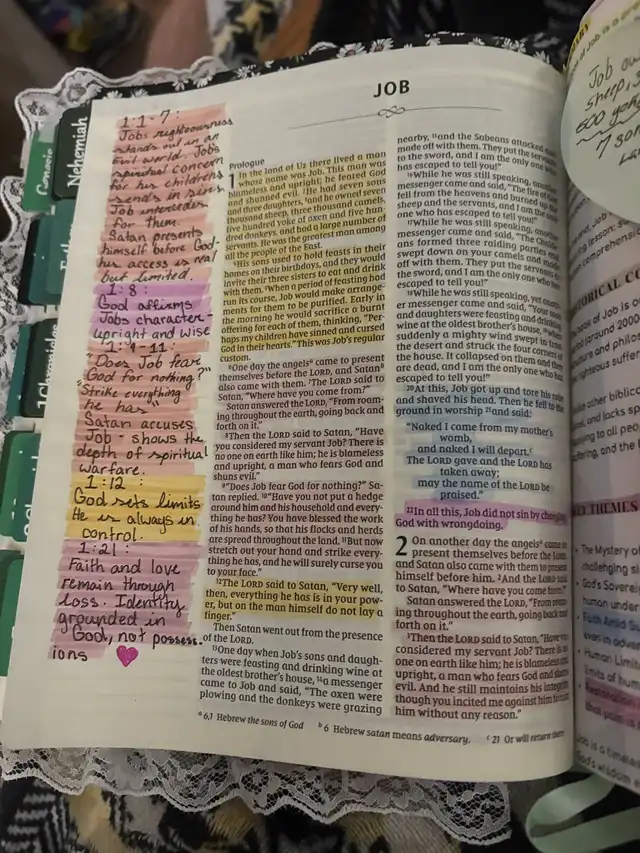 JOB
1:1-7:
Jobs righteousness
stands out in an
Evil world. Jobs
spiritual concern
for his childrens
sends in sins
Job intercedes
for them.
Satan presents
himself before God-
his access is real
but limited.
1:8:
God affirms
Jobs character-
upright and wise
1:9-11:
"Does Job fear
God for nothing?"
"Strike everything
he has"
Satan accuses
Job - shows the
depth of spiritual
warfare.
1:12:
God sets limits
He is always in
control.
1:21:
Faith and love
remain through
loss. Identity
grounded in
God, not possess.
ions
Prologue
1 In the land of Uz there lived a man
whose name was Job. This man was
blameless and upright; he feared God
and shunned evil. ²He had seven sons
and three daughters, ³and he owned seven
thousand sheep, three thousand camels,
five hundred yoke of oxen and five hun-
dred donkeys, and had a large number of
servants. He was the greatest man among
all the people of the East.
⁴His sons used to hold feasts in their
homes on their birthdays, and they would
invite their three sisters to eat and drink
with them. ⁵When a period of feasting had
run its course, Job would make arrange-
ments for them to be purified. Early in
the morning he would sacrifice a burnt
offering for each of them, thinking, "Per-
haps my children have sinned and cursed
God in their hearts." This was Job's regular
custom.
⁶One day the angelsᵃ came to present
themselves before the LORD, and Satanᵇ
also came with them. ⁷The LORD said to
Satan, "Where have you come from?"
Satan answered the LORD, "From roam-
ing throughout the earth, going back and
forth on it."
⁸Then the LORD said to Satan, "Have
you considered my servant Job? There is
no one on earth like him; he is blameless
and upright, a man who fears God and
shuns evil."
⁹"Does Job fear God for nothing?" Sa-
tan replied. ¹⁰"Have you not put a hedge
around him and his household and every-
thing he has? You have blessed the work
of his hands, so that his flocks and herds
are spread throughout the land. ¹¹But now
stretch out your hand and strike every-
thing he has, and he will surely curse you
to your face."
¹²The LORD said to Satan, "Very well,
then, everything he has is in your pow-
er, but on the man himself do not lay a
finger."
Then Satan went out from the presence
of the LORD.
¹³One day when Job's sons and daugh-
ters were feasting and drinking wine at
the oldest brother's house, ¹⁴a messenger
came to Job and said, "The oxen were
plowing and the donkeys were grazing
nearby, ¹⁵and the Sabeans attacked and
made off with them. They put the servants
to the sword, and I am the only one who
has escaped to tell you!"
¹⁶While he was still speaking, another
messenger came and said, "The fire of God
fell from the heavens and burned up the
sheep and the servants, and I am the only
one who has escaped to tell you!"
¹⁷While he was still speaking, another
messenger came and said, "The Chalde-
ans formed three raiding parties and
swept down on your camels and made
off with them. They put the servants to
the sword, and I am the only one who has
escaped to tell you!"
¹⁸While he was still speaking, yet anoth-
er messenger came and said, "Your sons
and daughters were feasting and drinking
wine at the oldest brother's house, ¹⁹when
suddenly a mighty wind swept in from
the desert and struck the four corners of
the house. It collapsed on them and they
are dead, and I am the only one who has
escaped to tell you!"
²⁰At this, Job got up and tore his robe
and shaved his head. Then he fell to the
ground in worship ²¹and said:
"Naked I came from my mother's
womb,
and naked I will depart.ᶜ
The LORD gave and the LORD has
taken away;
may the name of the LORD be
praised."
²²In all this, Job did not sin by charging
God with wrongdoing.
2 On another day the angelsᵃ came to
present themselves before the LORD,
and Satan also came with them to present
himself before him. ²And the LORD said
to Satan, "Where have you come from?"
Satan answered the LORD, "From roam-
ing throughout the earth, going back and
forth on it."
³Then the LORD said to Satan, "Have you
considered my servant Job? There is no
one on earth like him; he is blameless and
upright, a man who fears God and shuns
evil. And he still maintains his integrity,
though you incited me against him to ruin
him without any reason."
ᵃ 6,1 Hebrew the sons of God ᵇ 6 Hebrew satan means adversary. ᶜ 21 Or will return there
Genesis
Nehemiah
1 Chronicles
Job
sheep,
500
7 son
KEY THEMES
The Mystery of
challenging
God's Sovereig
human under
Faith Amid Su
even in adver
Human Limit
limits of hum
Job is a timele
God's wisdom